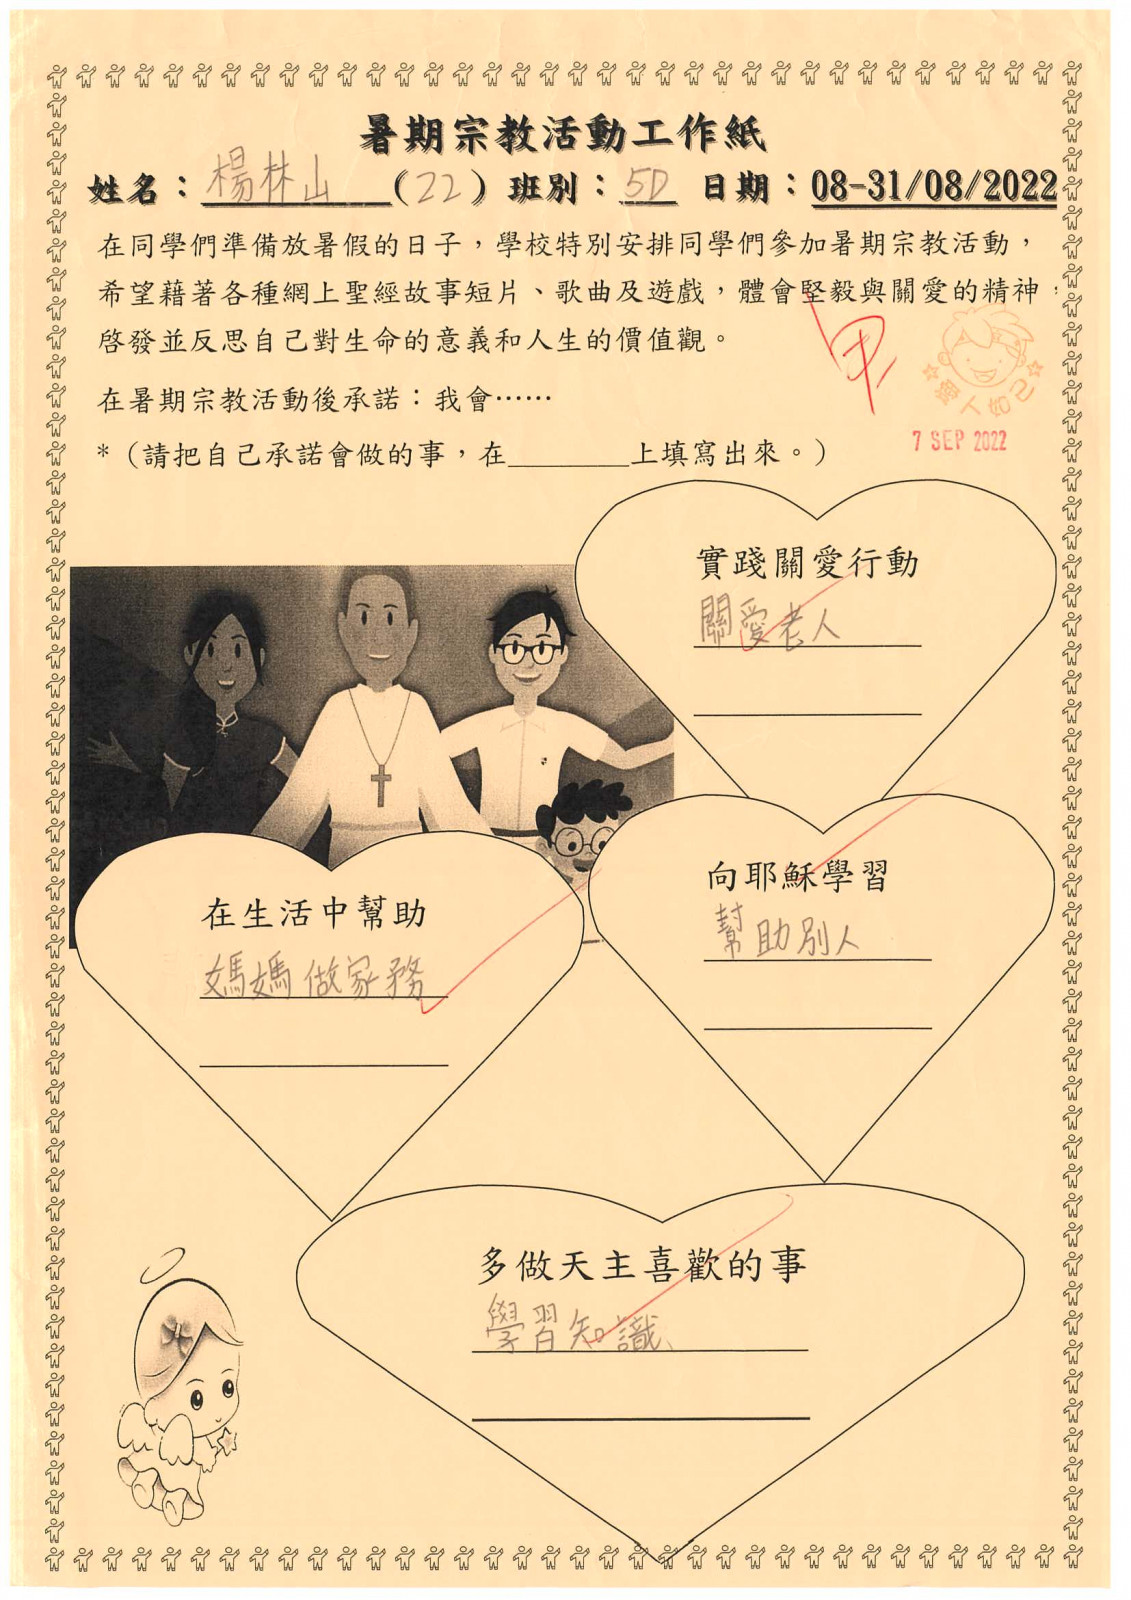 暑期宗教活動工作紙
姓名：楊林山（22）班別：5D 日期：08-31/08/2022
在同學們準備放暑假的日子，學校特別安排同學們參加暑期宗教活動，
希望藉著各種網上聖經故事短片、歌曲及遊戲，體會堅毅與關愛的精神，
啓發並反思自己對生命的意義和人生的價值觀。
甲
愛人如己
在暑期宗教活動後承諾：我會……
7 SEP 2022
*（請把自己承諾會做的事，在________上填寫出來。）
實踐關愛行動
關愛老人
向耶穌學習
幫助別人
在生活中幫助
媽媽做家務
多做天主喜歡的事
學習知識